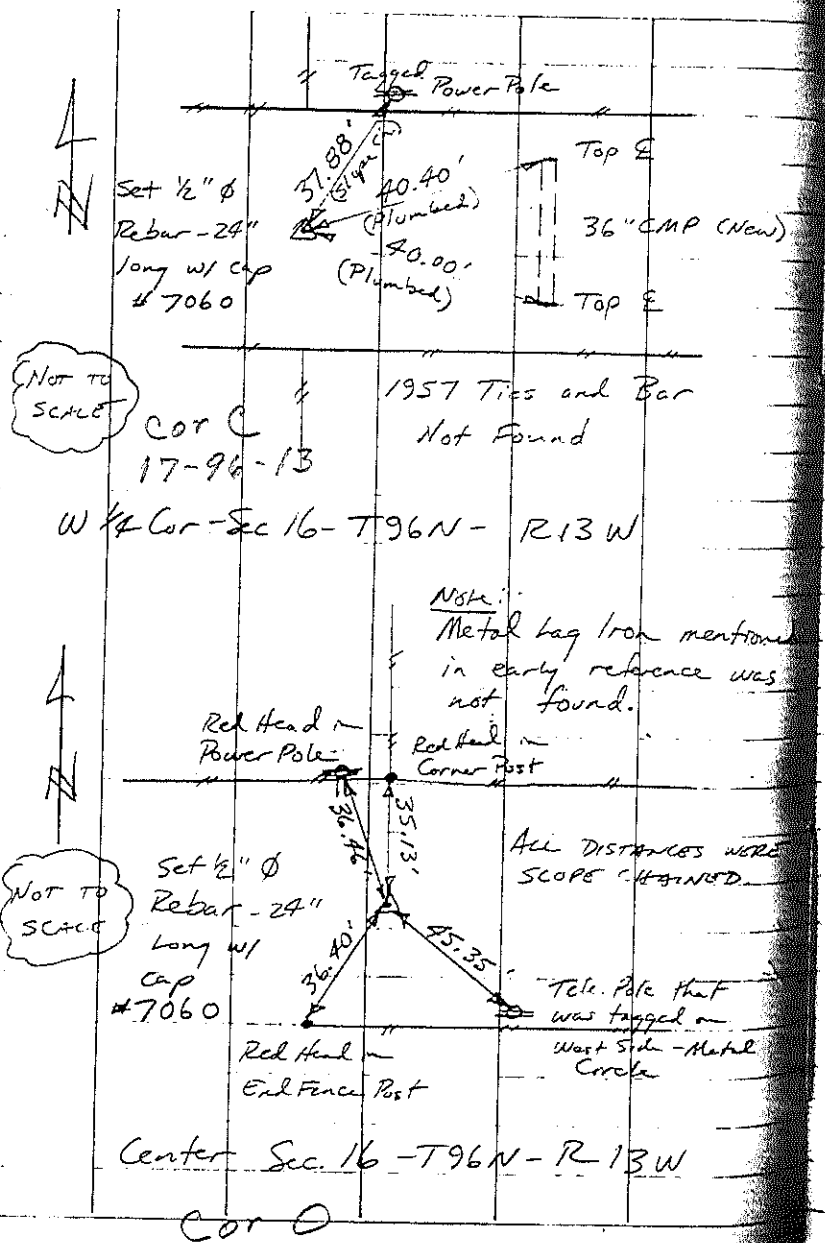 Tagged Power Pole
37.88'
(Slope Ch)
Set 1/2" Ø
Rebar - 24"
long w/ cap
# 7060
40.40'
(Plumbed)
40.00'
(Plumbed)
Top ℄
36" CMP (New)
Top ℄
NOT TO
SCALE
Cor C
17-96-13
1957 Ties and Bar
Not Found
W 1/4 Cor - Sec 16 - T96N - R13W
N
Note:
Metal Lag Iron mentione
in early reference was
not found.
Red Head in
Power Pole
Red Head in
Corner Post
36.46'
35.13'
ALL DISTANCES WERE
SCOPE CHAINED
N
NOT TO
SCALE
Set 1/2" Ø
Rebar - 24"
Long w/
cap
#7060
36.40'
45.35'
Tele. Pole that
was tagged on
West Side - Metal
Circle
Red Head in
End Fence Post
Center Sec. 16 - T96N - R13W
Cor O